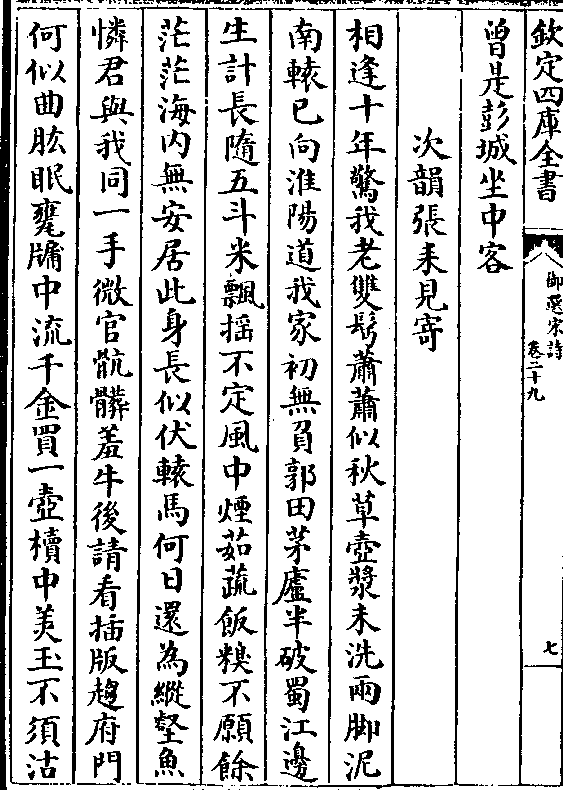 欽定四庫全書
御選宋詩
卷二十九
七
曾是彭城坐中客
次韻張耒見寄
相逢十年驚我老雙鬢蕭蕭似秋草壺漿未洗兩脚泥
南轅已向淮陽道我家初無負郭田茅廬半破蜀江邊
生計長隨五斗米飄揺不定風中煙茹蔬飯糗不願餘
茫茫海内無安居此身長似伏轅馬何日還為縱壑魚
憐君與我同一手微官骯髒羞牛後請看揷版趨府門
何似曲肱眠甕牖中流千金買一壺櫝中美玉不須沽